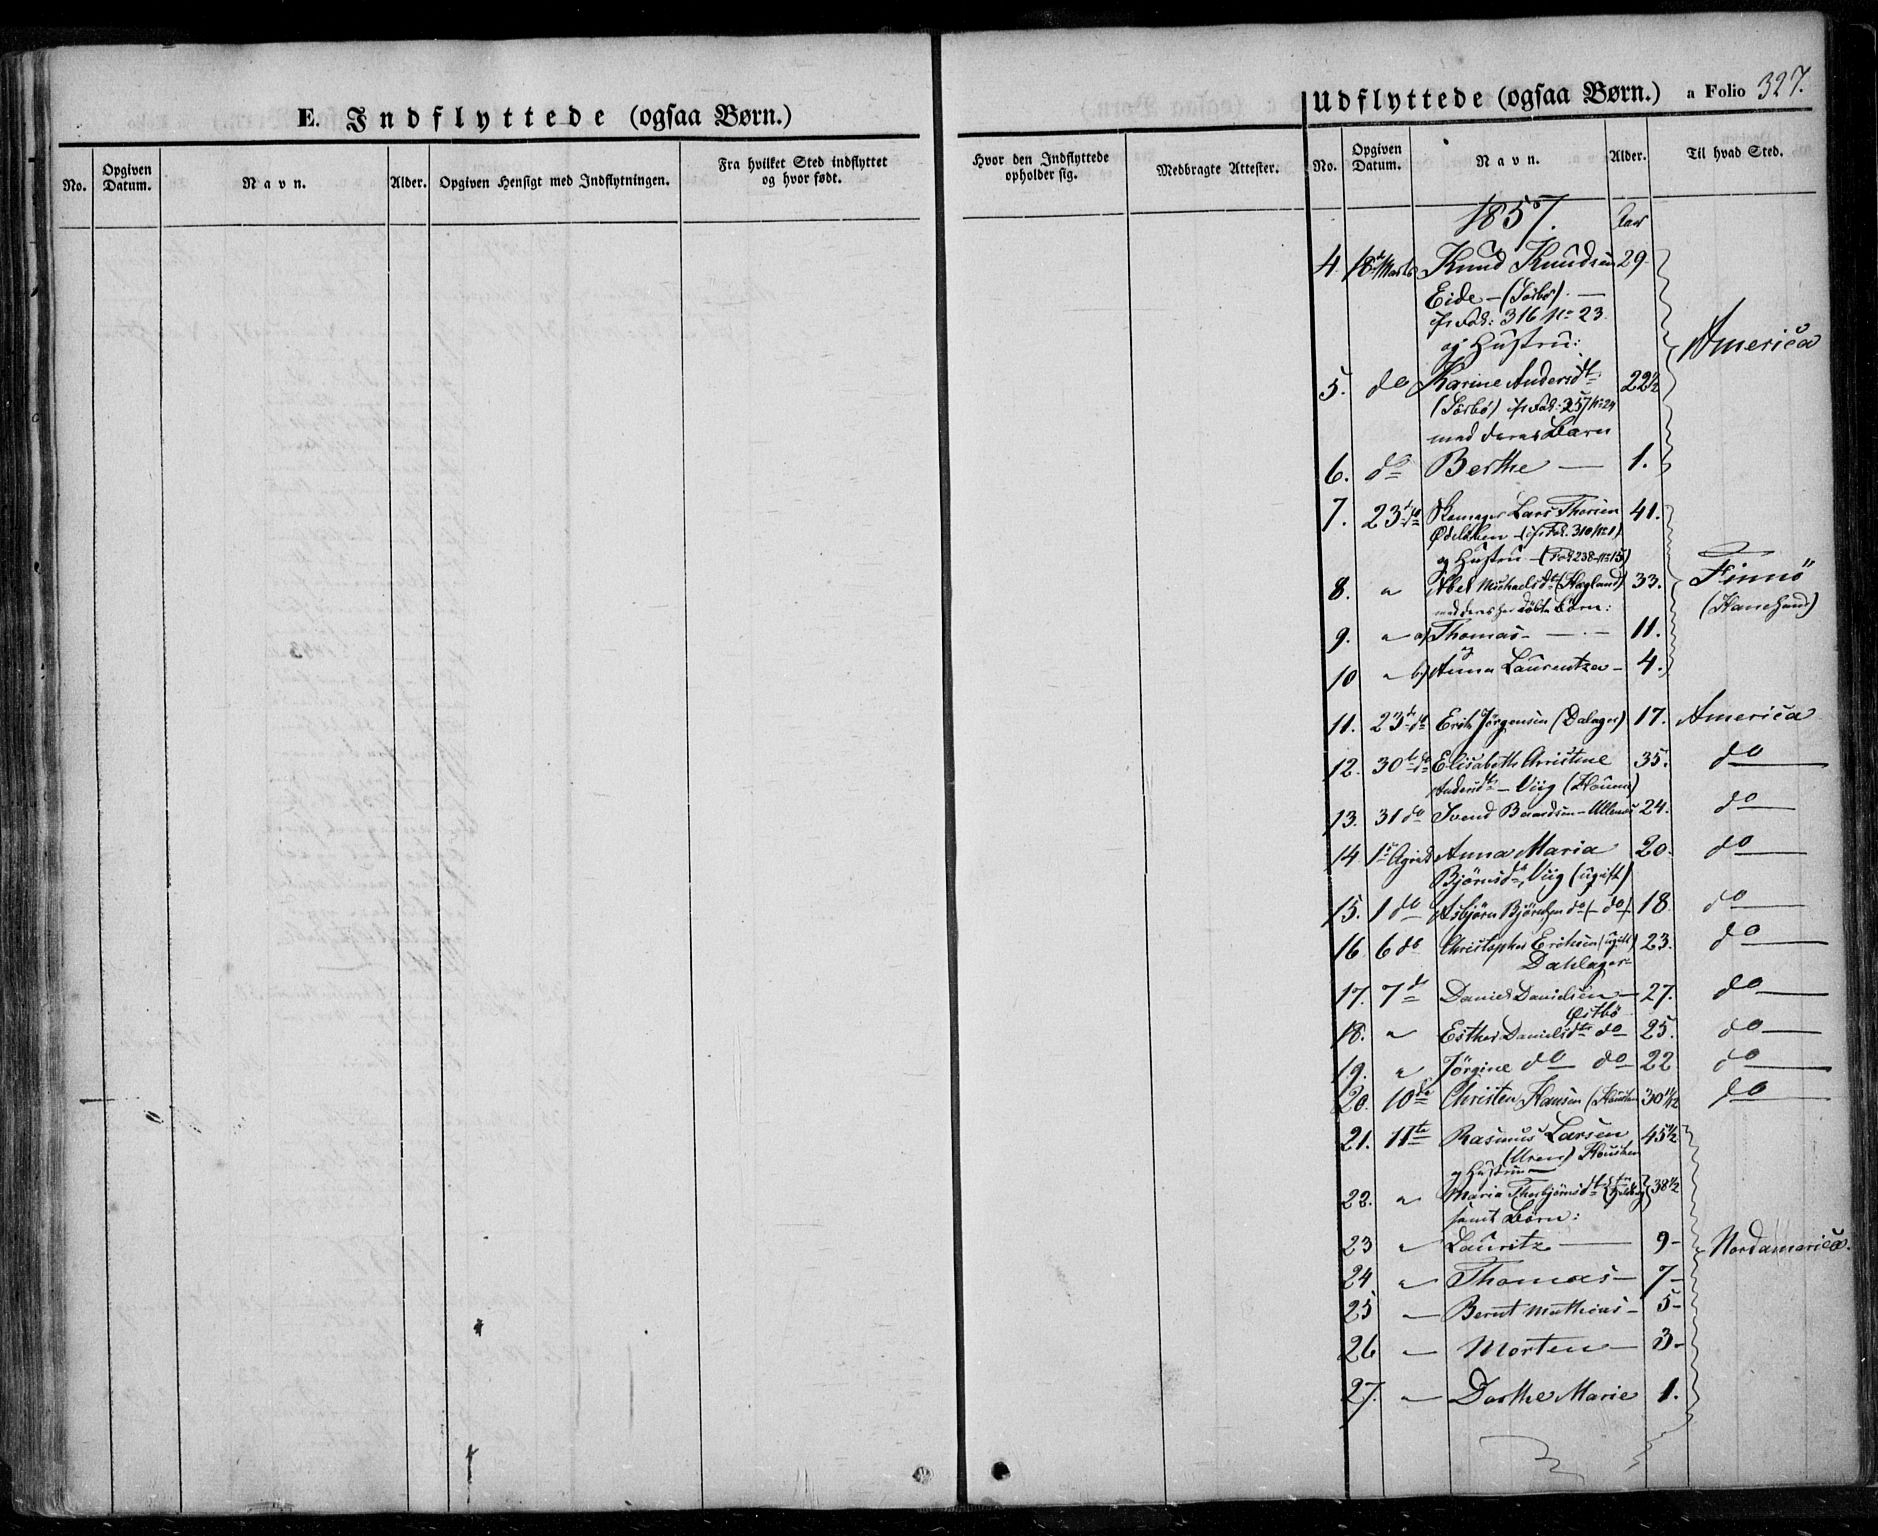 E. Indflyttede (ogsaa Børn.)
Udflyttede (ogsaa Børn.) a Folio 327.
No. Opgiven Datum. Navn. Alder. Opgiven Hensigt med Indflytningen. Fra hvilket Sted indflyttet og hvor født. Hvor den Indflyttede opholder sig. Medbragte Attester. No. Opgiven Datum. Navn. Alder. Til hvad Sted.
1857. Aar
4 18de Marts Knud Knudsen 29
Eide - (Sørbø). -
Fol: 316 No 23.
og Hustru:
America
5. do Karine Andersdtr 22 1/2
(Sørbø) Fol: 257 No 24
med deres Barn
6. do Berthe - 1.
7. 23de do Lars Thorsen 41.
(Fol. 310 No 1)
og Hustru - (Fol 238 No 15)
8. " Abel Michaelsdtr (Hagland) 33. Finnö
med deres her døbte Børn:
9. " a) Thomas - 11.
og
10 " b) Anna Laurentza - 4.
11. 23de do Erik Jørgensen (Dalager) 17. America
12. 30te do Elisabeth Christine 35. do
Andersdtr - Viig
13. 31 do Svend Baardsen - Ullenes 24. do
14 1ste April Anna Maria 20. do
Bjørnsdtr, Viig (ugift)
15. 1 do Asbjørn Bjørnsen do (- do) 18. do
16 6 do Christopher Erichsen (ugift) 23. do
Dahlager
17. 7de Daniel Danielsen - 27. do
Østbø
18. " Esther Danielsdtr do 25. do
19. " Jørgine do do 22 do
20. 10de Christen Hansen 30 1/2 do
21. 11te Rasmus Larsen 45 1/2
og Hustru
22. " Maria Thorbjørnsdtr 38 1/2
samt Børn:
23 " Lauritz - 9 - Nordamerica.
24 " Thomas - 7 -
25 - Bernt Mathias - 5 -
26 - Morten - 3 -
27. " Dorthe Marie 1.